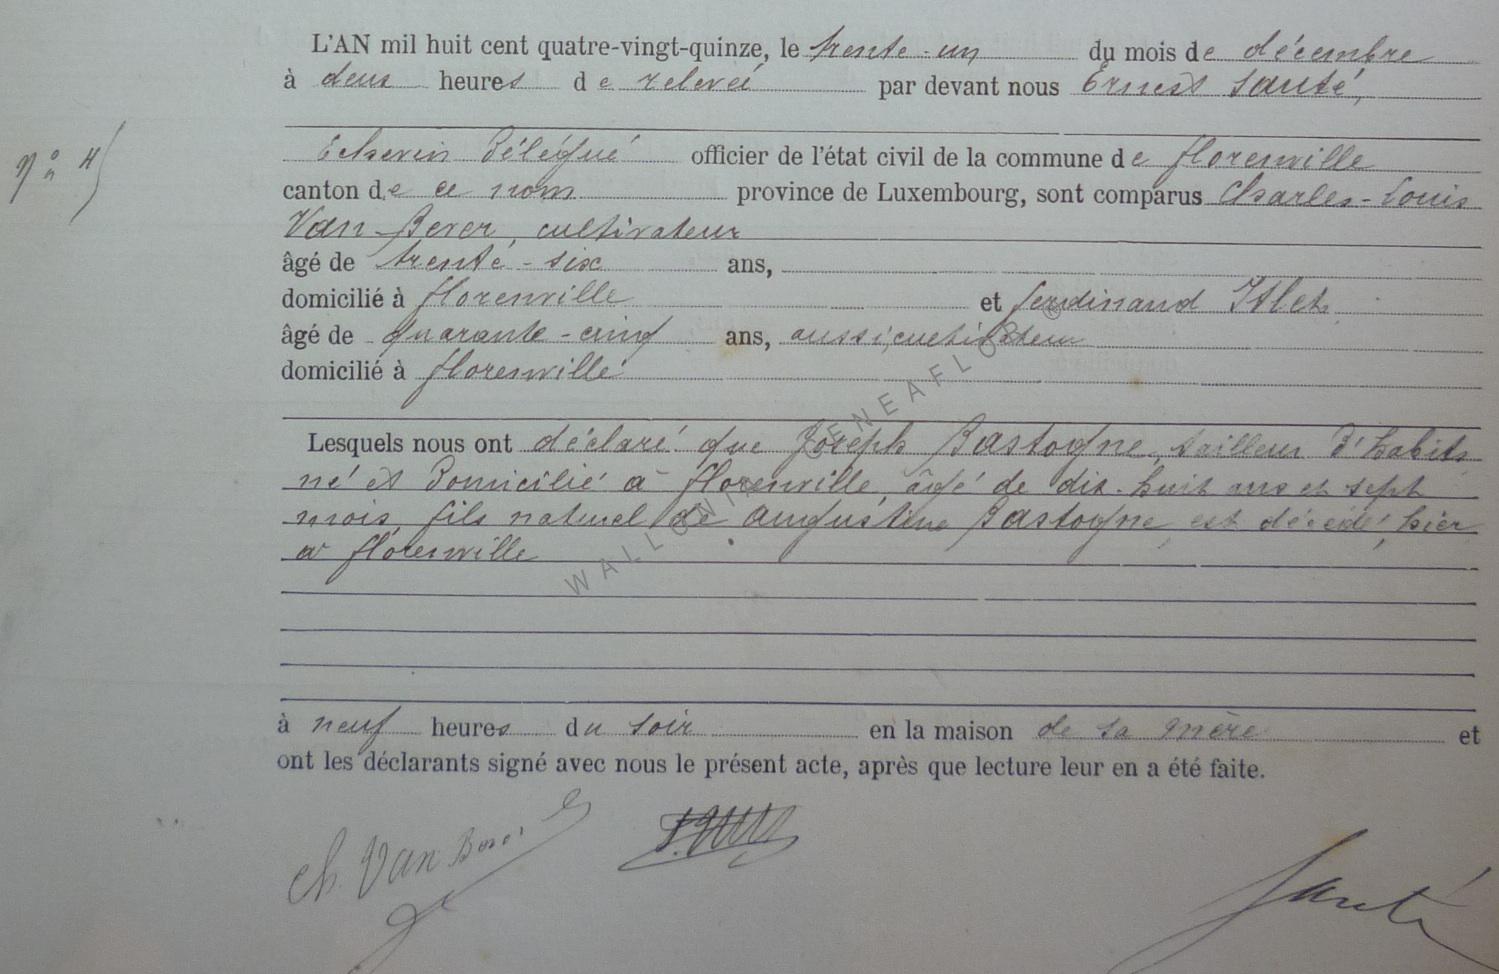 L'AN mil huit cent quatre-vingt-quinze, le trente-un du mois de décembre
à deux heures de relevée par devant nous Ernest Santé,
Echevin Délégué officier de l'état civil de la commune de florenville
n°
canton de ce nom province de Luxembourg, sont comparus Charles-Louis
Van Bever, cultivateur
âgé de trente-six ans,
domicilié à florenville et ferdinand
âgé de quarante-cinq ans, aussi cultivateur
domicilié à florenville
Lesquels nous ont déclaré que Joseph Bastogne, tailleur d'habits
né et domicilié à florenville, âgé de dix-huit ans et sept
mois, fils naturel de augustine Bastogne, est décédé, hier
à florenville
WALLONIE GENEAFLORE
à neuf heures du soir en la maison de sa mère et
ont les déclarants signé avec nous le présent acte, après que lecture leur en a été faite.
Ch. Van
Santé